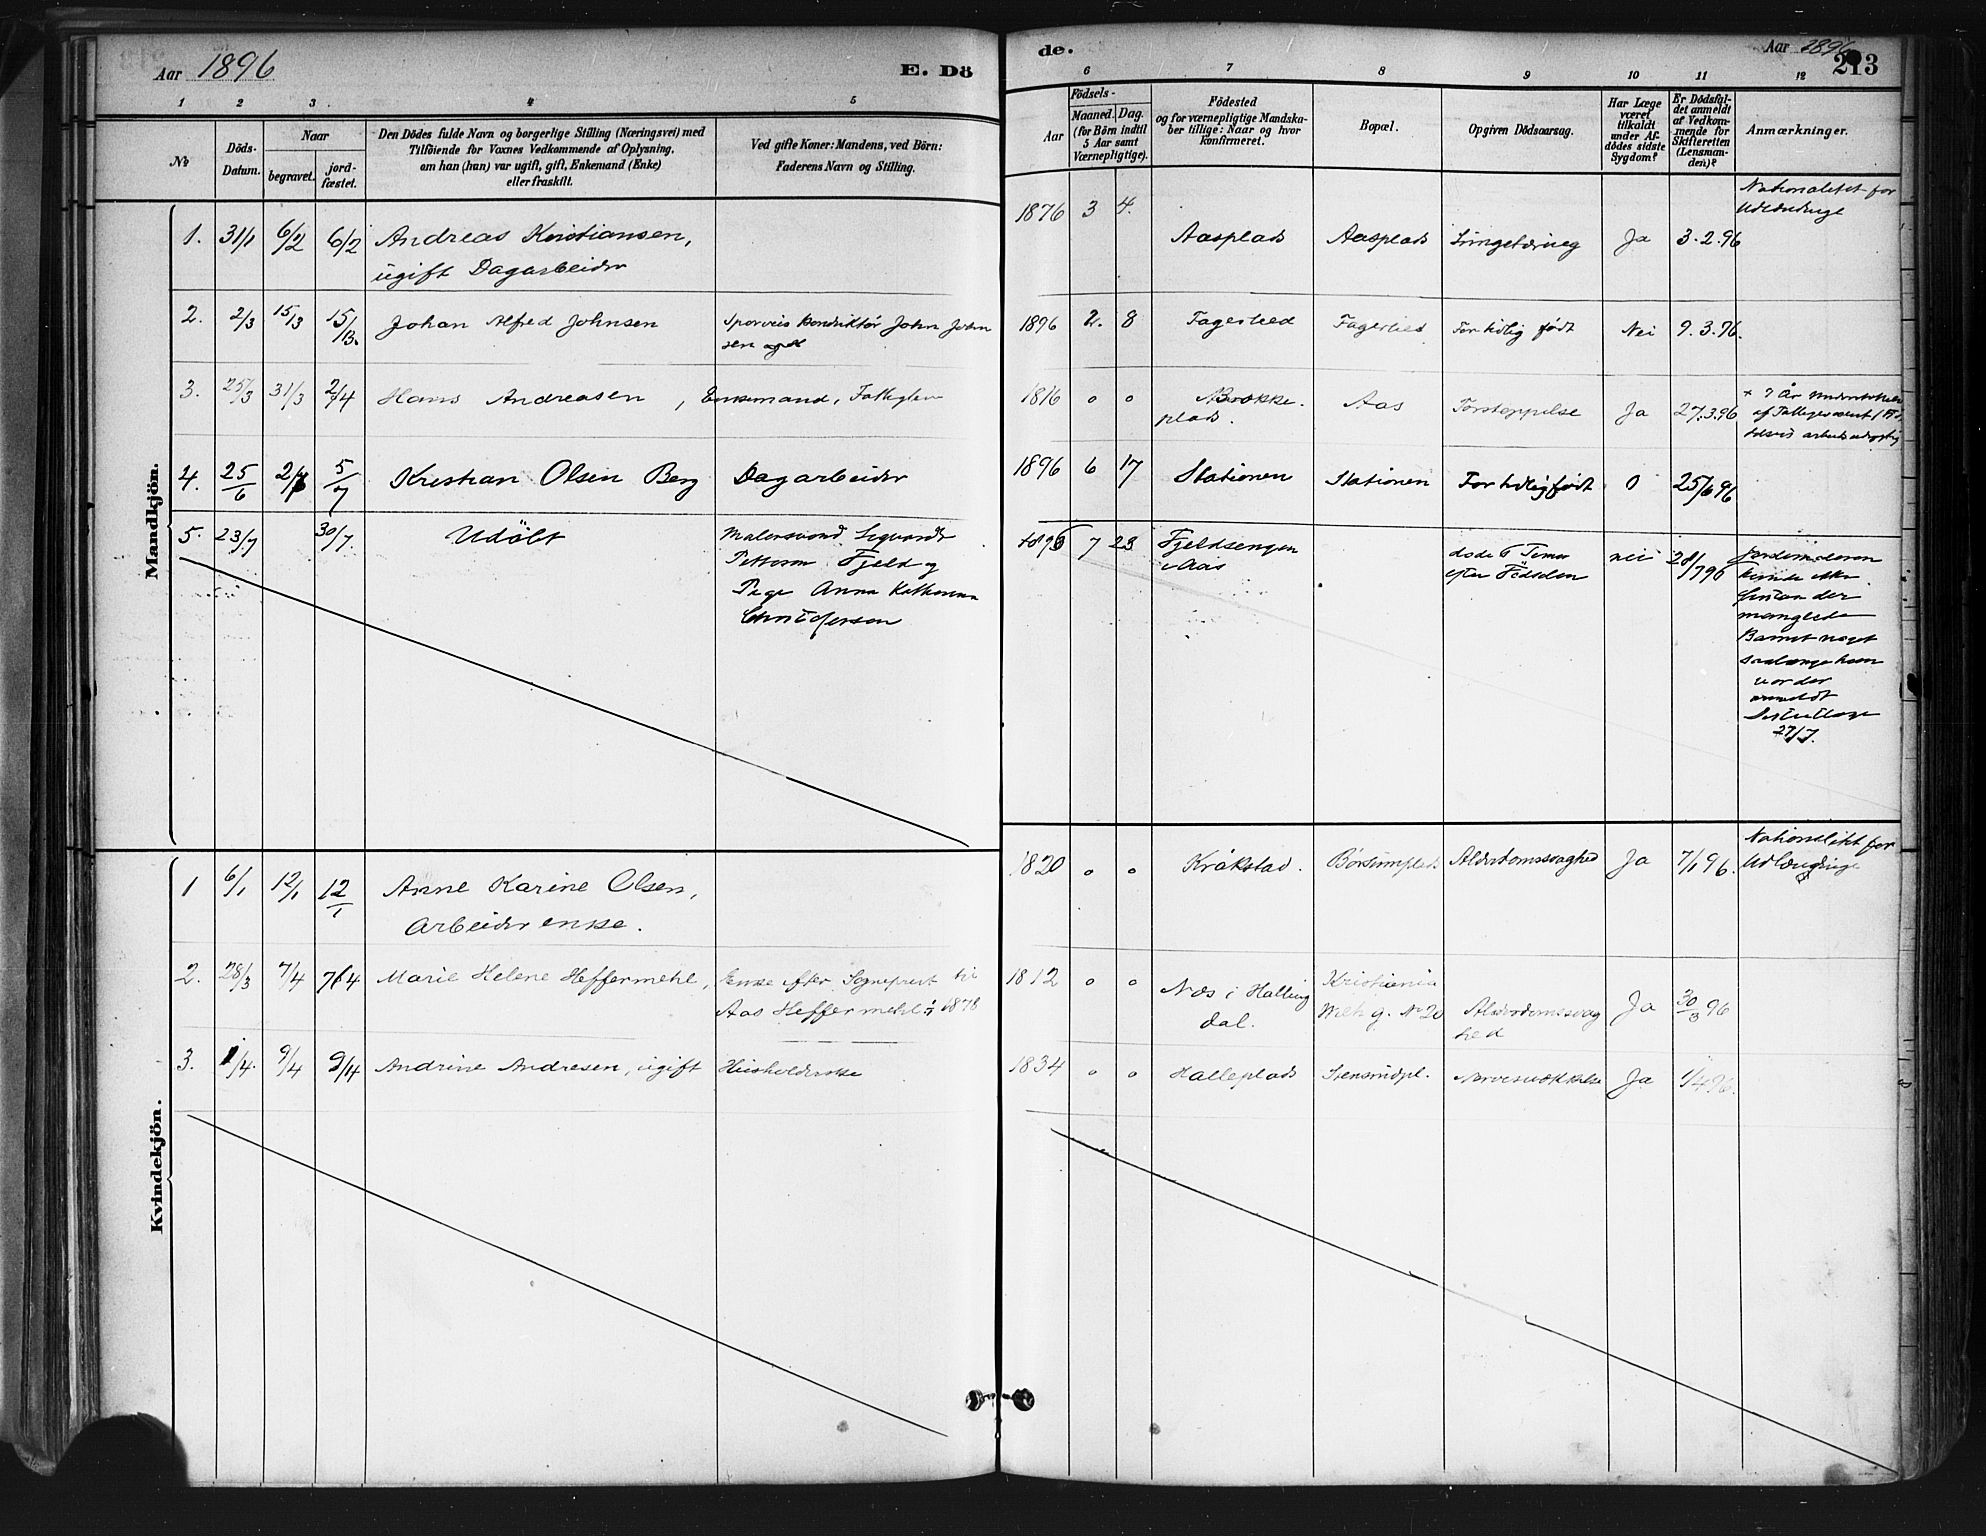 Aar 1896
E. Dö
de.
Aar 1896
213
1 2 3 4 5
6 7 8 9 10 11 12
No
Döds-
Datum.
Naar
begravet.
jord-
fæstet.
Den Dödes fulde Navn og borgerlige Stilling (Næringsvei) med
Tilföiende for Voxnes Vedkommende af Oplysning,
om han (hun) var ugift, gift, Enkemand (Enke)
eller fraskilt.
Ved gifte Koner: Mandens, ved Börn:
Faderens Navn og Stilling.
Födsels-
Aar
Maaned. Dag.
(for Börn indtil
5 Aar samt
Værnepligtige).
Födested
og for værnepligtige Mandska-
ber tillige: Naar og hvor
konfirmeret.
Bopæl.
Opgiven Dödsaarsag.
Har Læge
været
tilkaldt
under Af-
dödes sidste
Sygdom?
Er Dödsfal-
det anmeldt
af Vedkom-
mende for
Skifteretten
(Lensman-
den)?
Anmærkninger.
Mandkjön.
1. 31/1 6/2 6/2 Andreas Kristiansen,
ugift Dagarbeider
1876 3 4. Aasplads Aasplads Ja 3.2.96
Nationalitet for
2. 2/3 15/3 15/13. Johan Alfred Johnsen Sporveis Konduktør John John
sen
1896 2. 8 Fagerlied Fagerlied For tidlig født Nei 9.3.96.
3. 25/3 31/3 2/4 Hans Andreasen, Enkemand, Fattiglem
1816 0 0 Brække-
plads. Aas Forstoppelse Ja 27.3.96
4. 25/6 2/7 5/7 Kristian Olsen Berg Dagarbeider
1896 6 17 Stationen Stationen For tidlig født 0 25/6 96
5. 23/7 30/7. Udöbt Malersvend Sigvardt
Petterson Fjeld og
Pige Anna Katherina
Christofersen
1896 7 23 Fjeldsengen
i Aas døde 6 Timer
efter Födselen nei 28/7 96
Jordemoderen
manglede
Barnet noget
saalænge hun
var der
anmeldt
27/7.
Kvindekjön.
1 6/1 12/1 12/1 Anne Karine Olsen,
Arbeider enke.
1820 0 0 Kråkstad. Børsumplads Alderdomssvaghed Ja 7/1 96.
Nationalitet for
Udlændinge
2. 28/3 7/4 7/4 Marie Helene Heffermehl, Enke efter Sogneprest til
Aas Heffermehl 1878
1812 0 0 Næs i Halling
dal. Kristiania
No 20 Alderdomssvag
hed Ja 30/3 96
3. 1/4. 9/4 9/4 Andrine Andresen, ugift Husholderske
1834 0 0 Halleplads Stensrudpl. Nervesvækkelse Ja 1/4 96.